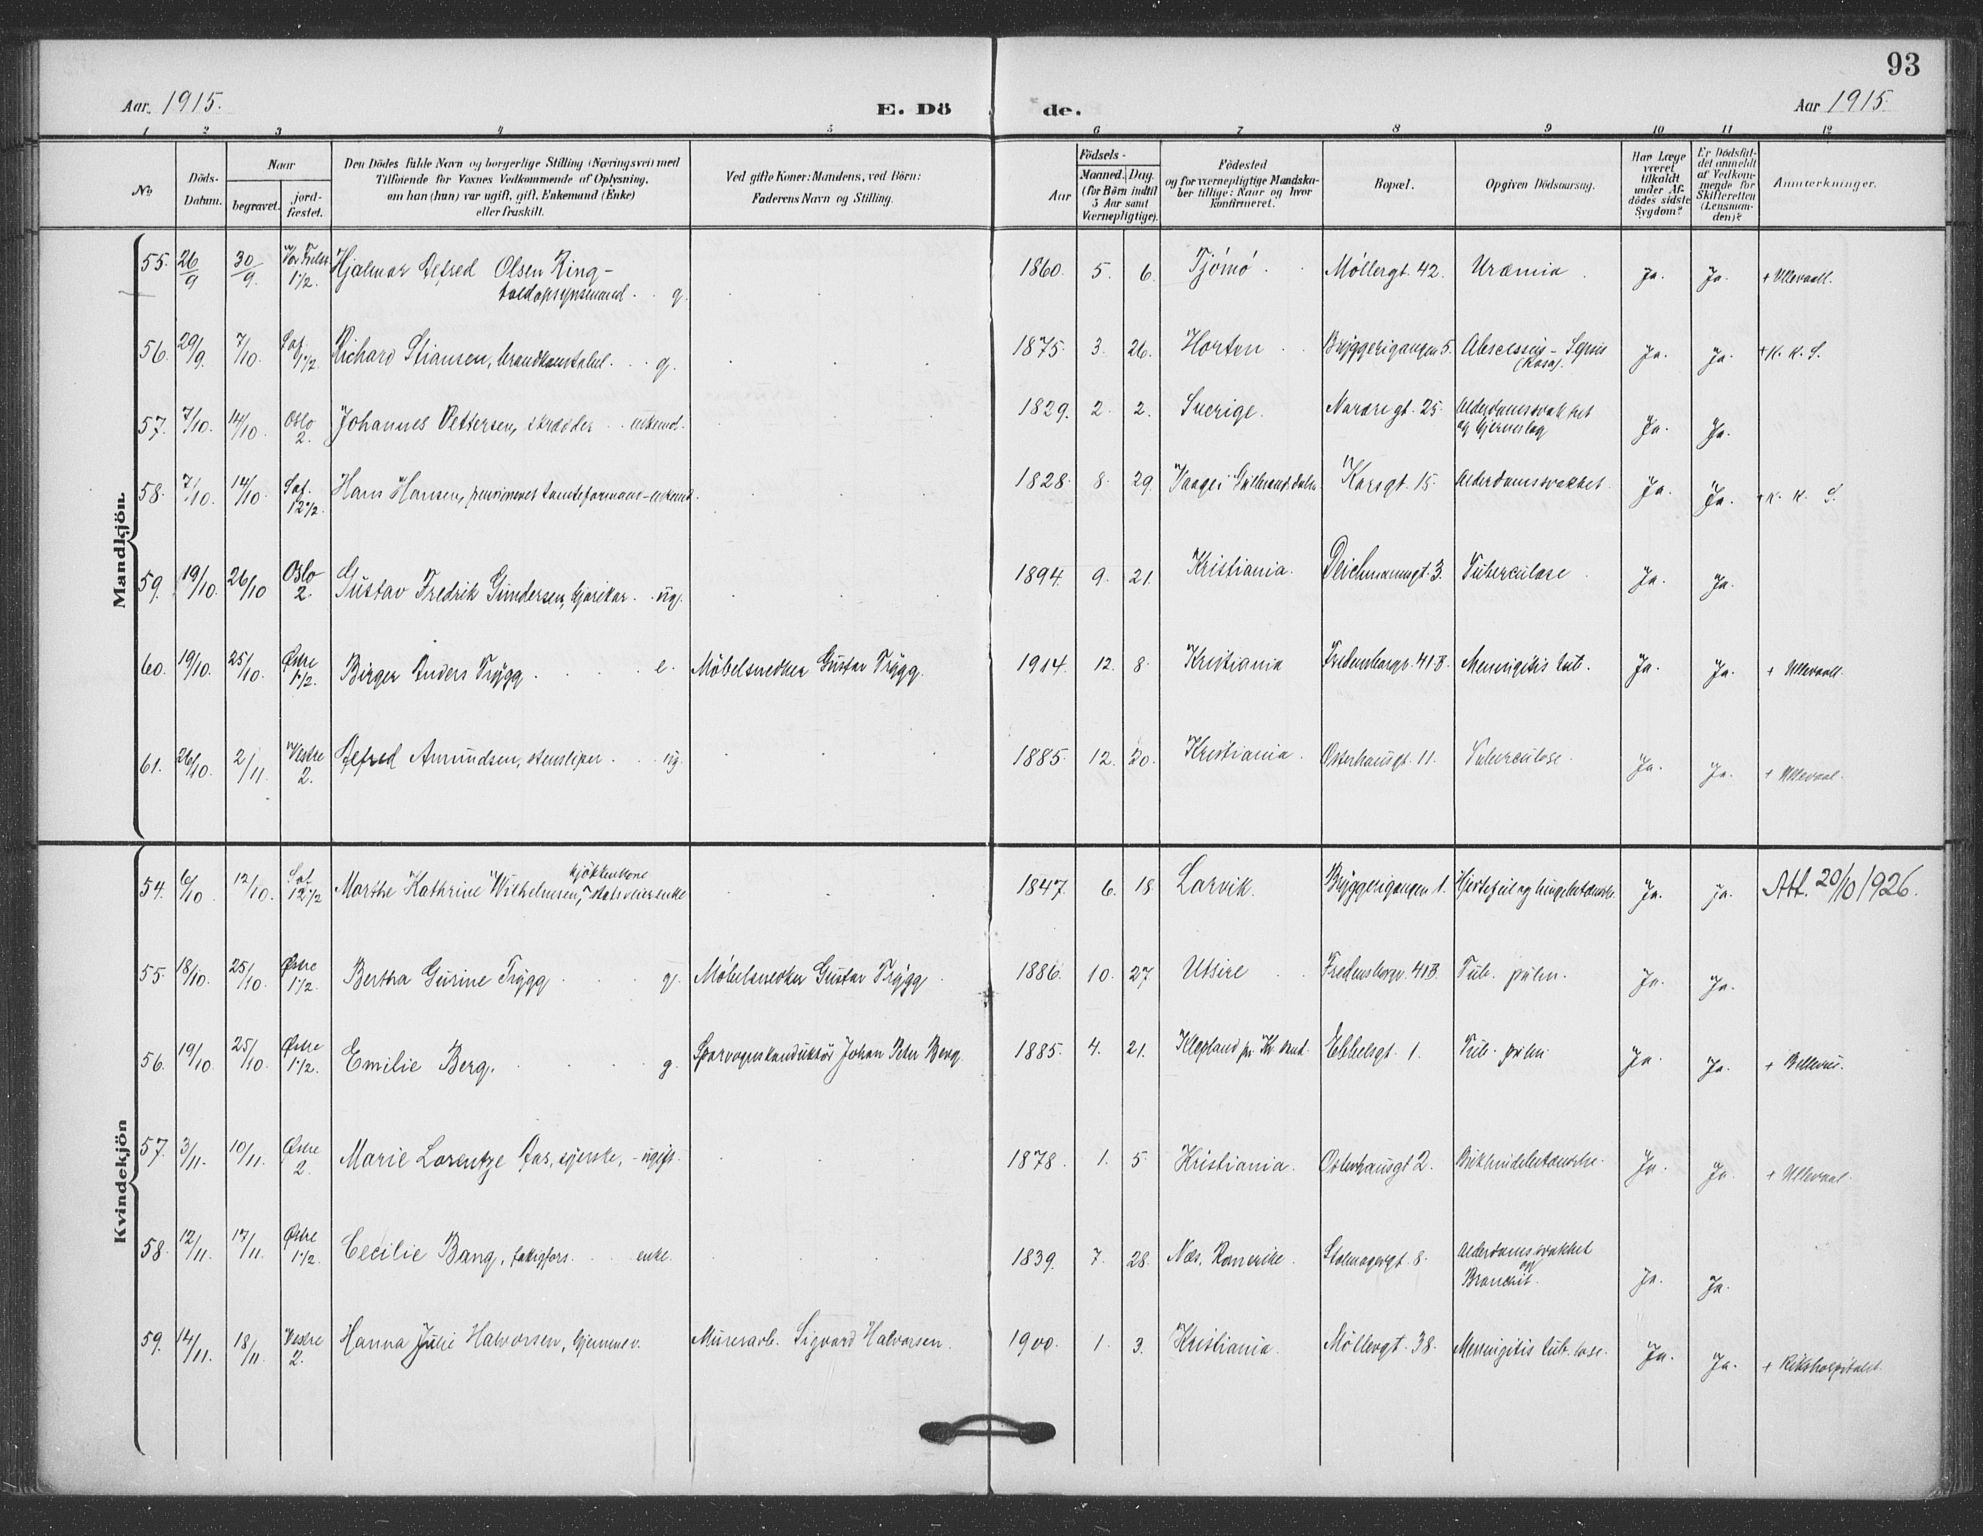 93
Aar. 1915. E. Dö de. Aar 1915.
1 2 3 4 5 6 7 8 9 10 11 12
No
Döds-
Datum.
Naar
begravet.
jord-
fæstet.
Den Dödes fulde Navn og borgerlige Stilling (Næringsvei) med
Tilföiende for Voxnes Vedkommende af Oplysning,
om han (hun) var ugift, gift, Enkemand (Enke)
eller fraskilt.
Ved gifte Koner: Mandens, ved Börn:
Faderens Navn og Stilling.
Födsels-
Aar
Maaned. Dag.
(for Börn indtil
5 Aar samt
Værnepligtige).
Födested
og for værnepligtige Mandska-
ber tillige: Naar og hvor
konfirmeret.
Bopæl.
Opgiven Dödsaarsag.
Har Læge
været
tilkaldt
under Af-
dödes sidste
Sygdom?
Er Dödsfal-
det anmeldt
af Vedkom-
mende for
Skifteretten
(Lensman-
den)?
Anmerkninger.
Mandkjön.
55. 26/9 30/9. Vor Frelser 1 1/2. Hjalmar Alfred Olsen Ring - 1860. 5. 6. Tjömö. Møllergt. 42. Uræmia. Ja. Ja. + Ullevaall.
toldopsynsmand. g.
56. 29/9. 7/10. Richard Stiansen, brandkonstabel. g. 1875. 3. 26. Horten. Bryggerigangen 5. Abscessus - Sepsis Ja. Ja. + K. K. S.
57. 7/10. 14/10. Oslo 2. Johannes Pettersen, skrædder. enkemd. 1829. 2. 2. Sverige. Nordre gt. 25. Alderdomssvakhet Ja. Ja.
og hjerneslag
58. 7/10. 14/10. Hans Hansen, pensioneret tomteformann - enkemd. 1828. 8. 29. Vaage i Gulbrandsdalen Korsgt. 15. Alderdomssvakhet. Ja. Ja. + K. K. S.
59. 19/10. 26/10 Oslo 2. Gustav Fredrik Gundersen, kjørekar. ug. 1894. 9. 21. Kristiania. Deichmannsgt. 3. Tuberculose. Ja. Ja.
60. 19/10. 25/10. Østre 1 1/2. Birger Anders Trygg. e. Møbelsnedker Gustav Trygg. 1914. 12. 8. Kristiania Fredensborgv. 41 B. Meningitis tub. Ja. Ja. + Ullevaall.
61. 26/10. 2/11. Vestre 2. Alfred Amundsen, stensliper. ug. 1885. 12. 20. Kristiania. Osterhausgt. 11. Tuberculose. Ja. Ja. + Ullevaal.
Kvindekjön
54. 6/10 12/10. Marthe Kathrine Wilhelmsen, kjøkkenkone 1847. 6. 18 Larvik. Bryggerigangen 1. Hjertefeil og lungebetændelse. Ja. ja. Att. 20/10 1926.
55. 18/10. 25/10. Østre 1 1/2. Bertha Gurine Trygg. g. Møbelsnedker Gustav Trygg. 1886. 10. 27 Utsire. Fredensborgv. 41 B. Tub. pulm. Ja. Ja.
56. 19/10. 25/10. Østre 1 1/2. Emilie Berg. g. Sporvognskonduktör Johan Peter Berg. 1885. 4. 21. Ebbelsgt. 1. Tub. pulm. Ja. Ja. + Bellevue.
57. 3/11. 10/11. Østre 2. Marie Lorentze Aas, syerske, - ugift. 1878. 1. 5. Kristiania. Osterhausgt 2. Bukhindebetændelse. Ja. Ja. + Ullevaal.
58. 12/11. 17/11. Østre 1 1/2. Cecilie Bang, enke. 1839. 7. 28. Næs, Romerike. Stolmagergt. 8. Alderdomssvakhet Ja. Ja.
og Bronchit.
59. 14/11. 18/11 Vestre 2. Hanna Julie Halvorsen, hjemmev. Murerarb. Sigvard Halvorsen. 1900. 1. 3. Kristiania. Møllergt. 38. Meningitis tub. Ja. Ja. + Rikshospitalet.